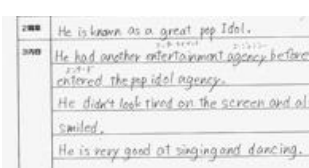 He is known as a great pop Idol.
He had another entertainment agency before
entered the pop idol agency.
He didn't look tired on the screen and al
smiled.
He is very good at singing and dancing.